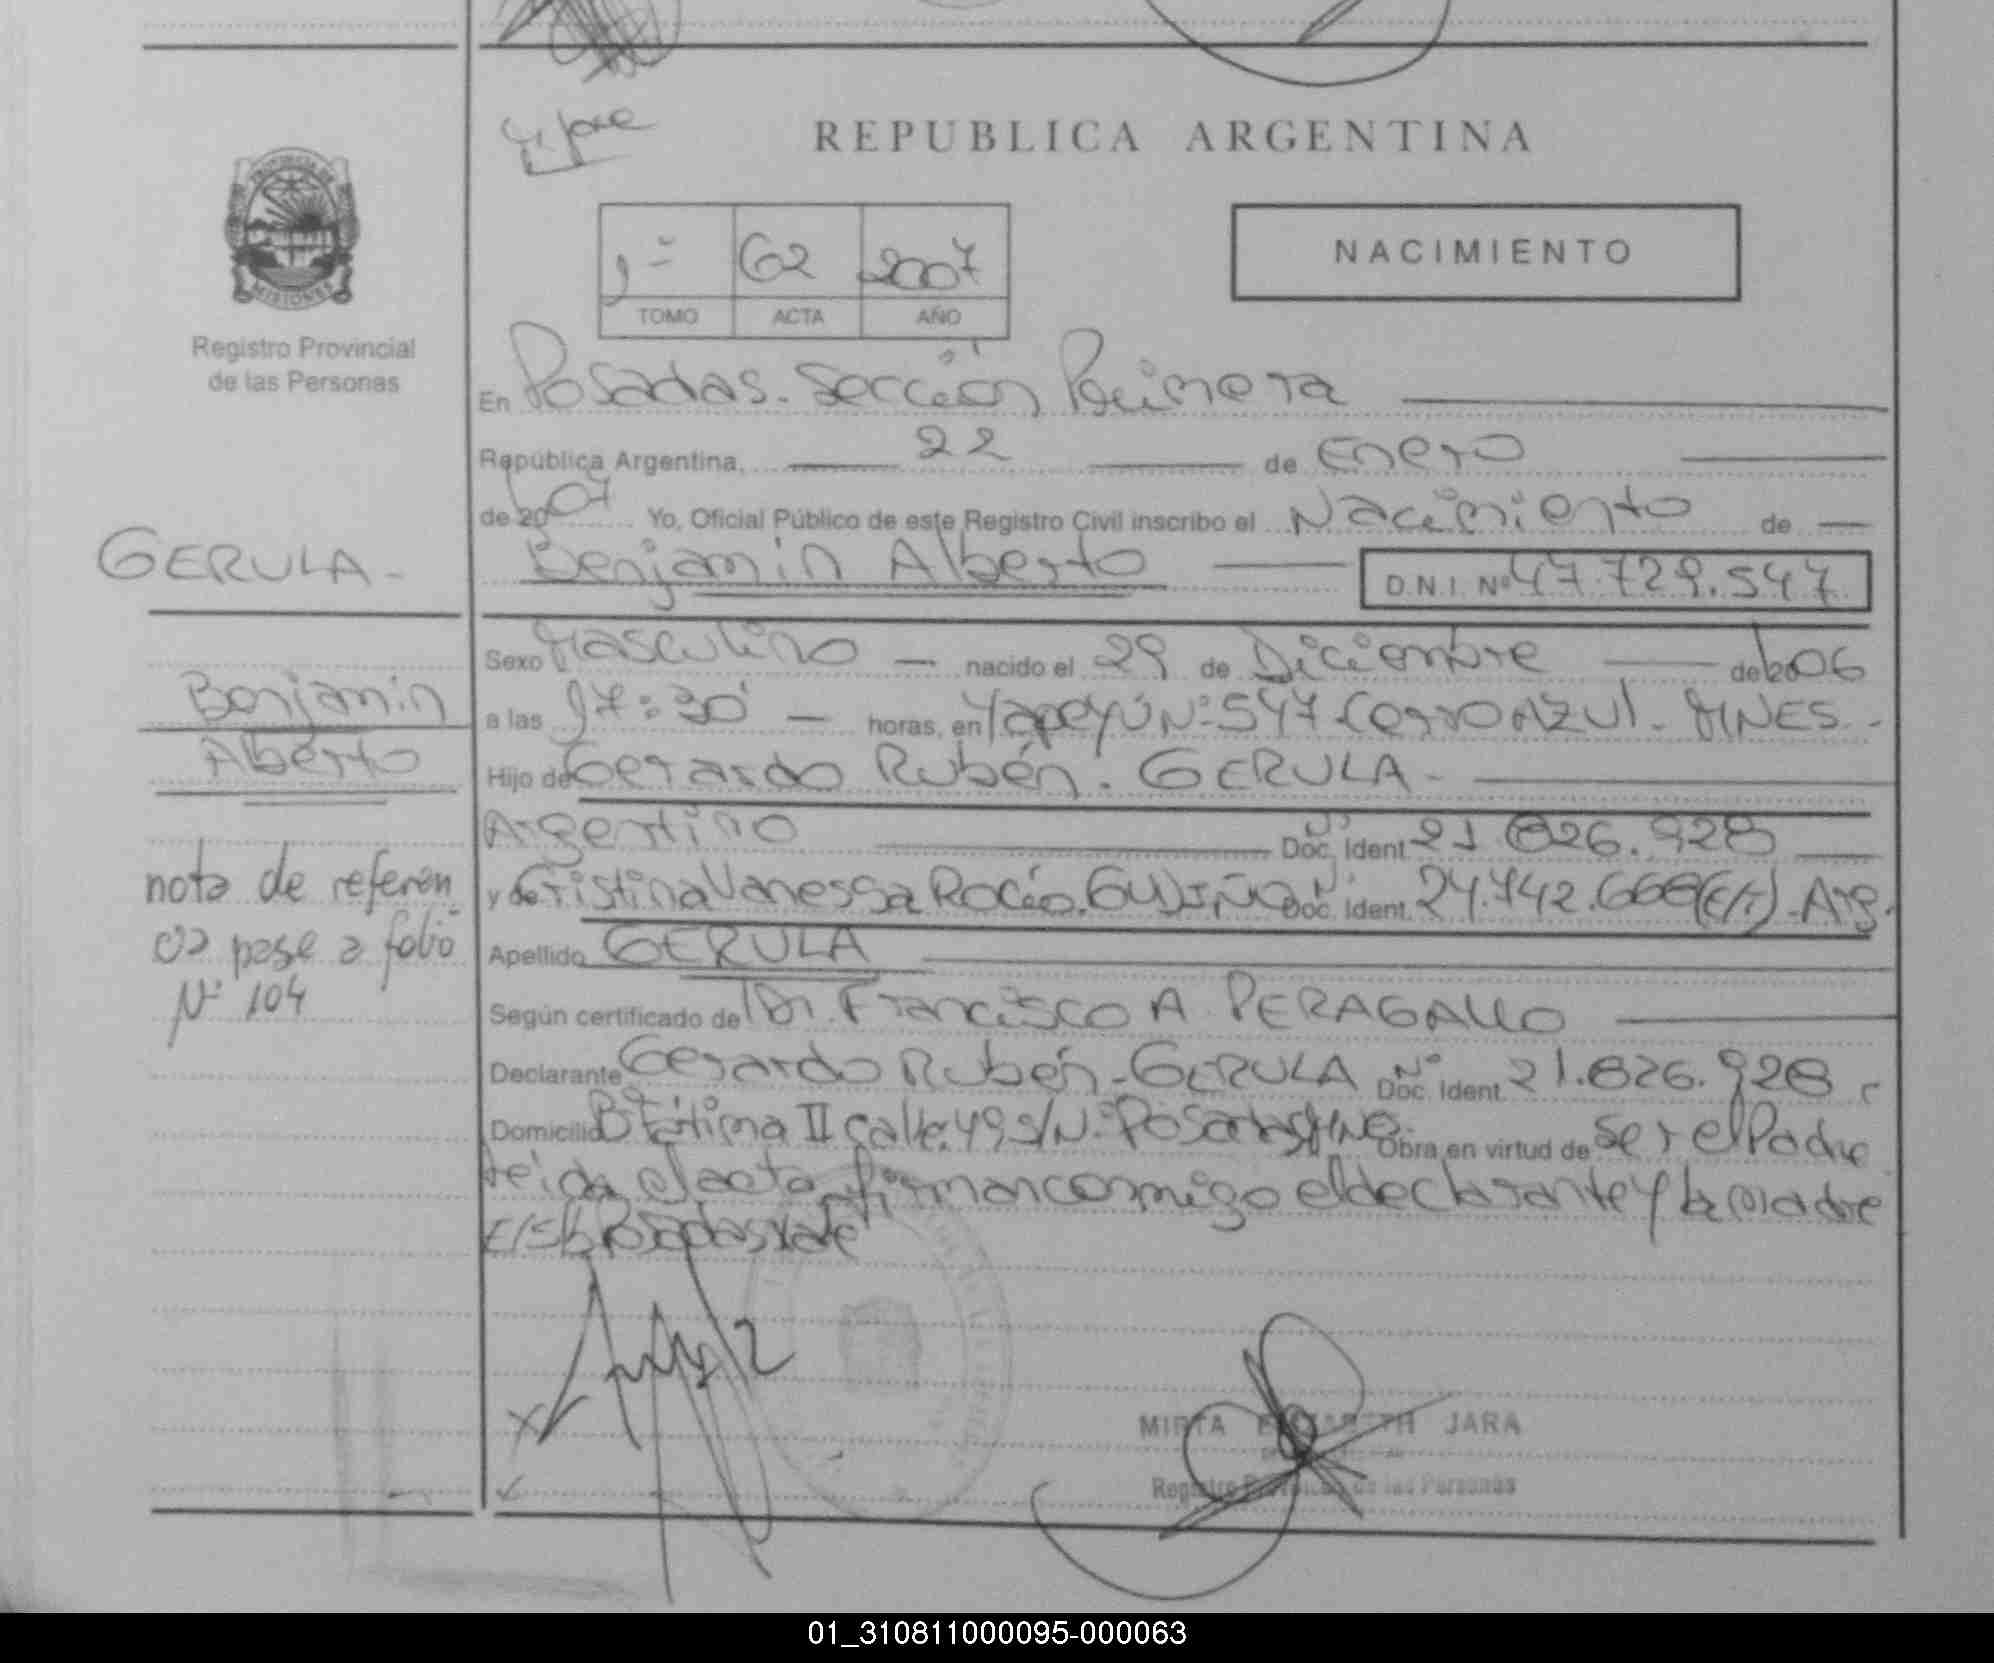 REPUBLICA ARGENTINA
PROVINCIA DE
MISIONES
Registro Provincial
de las Personas
1º 62 2007
TOMO ACTA AÑO
NACIMIENTO
En Posadas. Sección Primera
República Argentina, 22 de Enero
de 2007 Yo, Oficial Público de este Registro Civil inscribo el Nacimiento de
Benjamin Alberto D.N.I. Nº 47.729.547
GERULA-
Benjamin
Alberto
nota de referen
cia pase a folio
Nº 104
Sexo Masculino nacido el 29 de Diciembre de 2006
a las 17:30 horas, en Yapeyú Nº 547 Cerro Azul - MNES.-
Hijo de Gerardo Rubén. GERULA-
Argentino Nº Doc. Ident. 21.826.928
y de Cristina Vanessa Rocío. GUDIÑO Nº Doc. Ident. 24.742.668 -Arg.
Apellido GERULA
Según certificado de Dr. Francisco A. PERAGALLO
Declarante Gerardo Rubén-GERULA Nº Doc. Ident. 21.826.928
Domicilio Bº Fátima II Calle 49 S/Nº Posadas Obra en virtud de ser el Padre
Leida el acta firman conmigo el declarante y la madre
MIRTA ELIZABETH JARA
Registro Provincial de las Personas
01_310811000095-000063